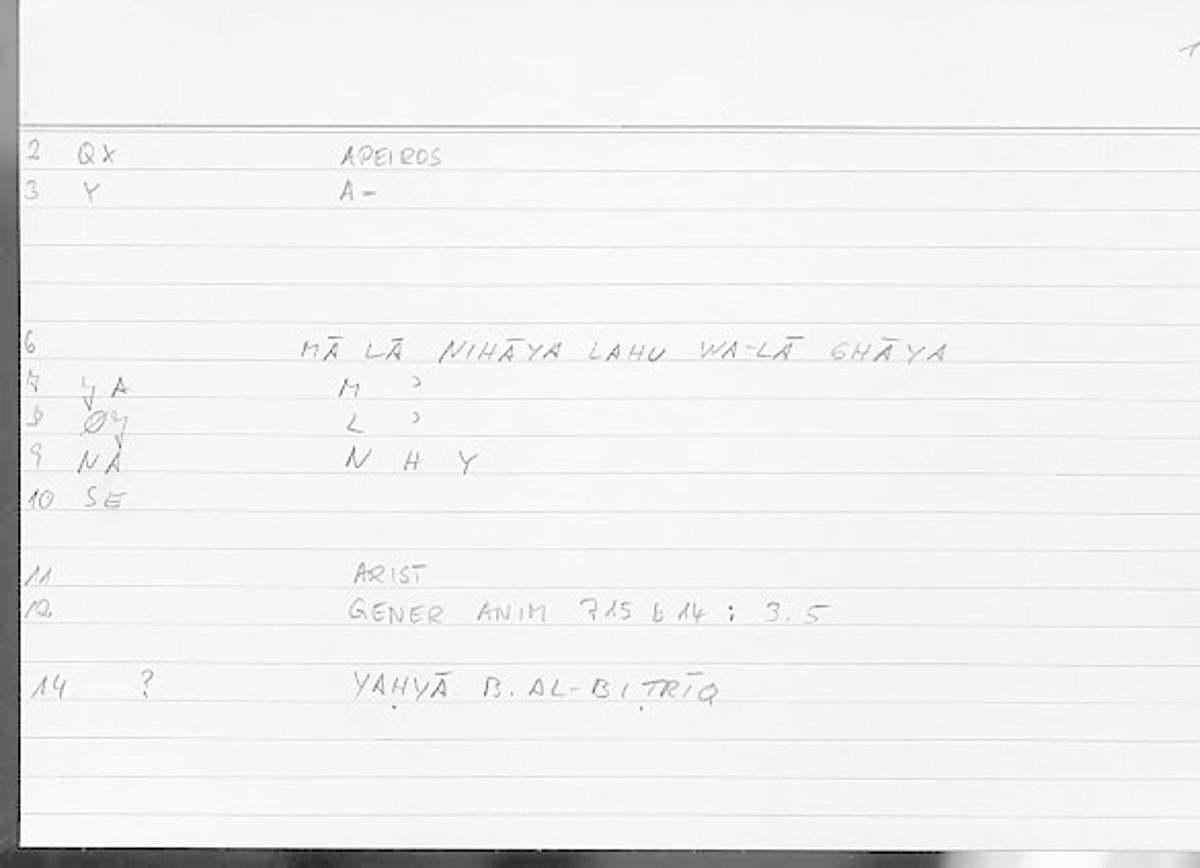 1
2 QX APEIROS
3 Y A-
6 MĀ LĀ NIHĀYA LAHU WA-LĀ GHĀYA
7 Y A M ʾ
8 ØY L ʾ
9 NA N H Y
10 SE
11 ARIST
12 GENER ANIM 715 b 14 : 3.5
14 ? YAḤYĀ B. AL-BIṬRĪQ